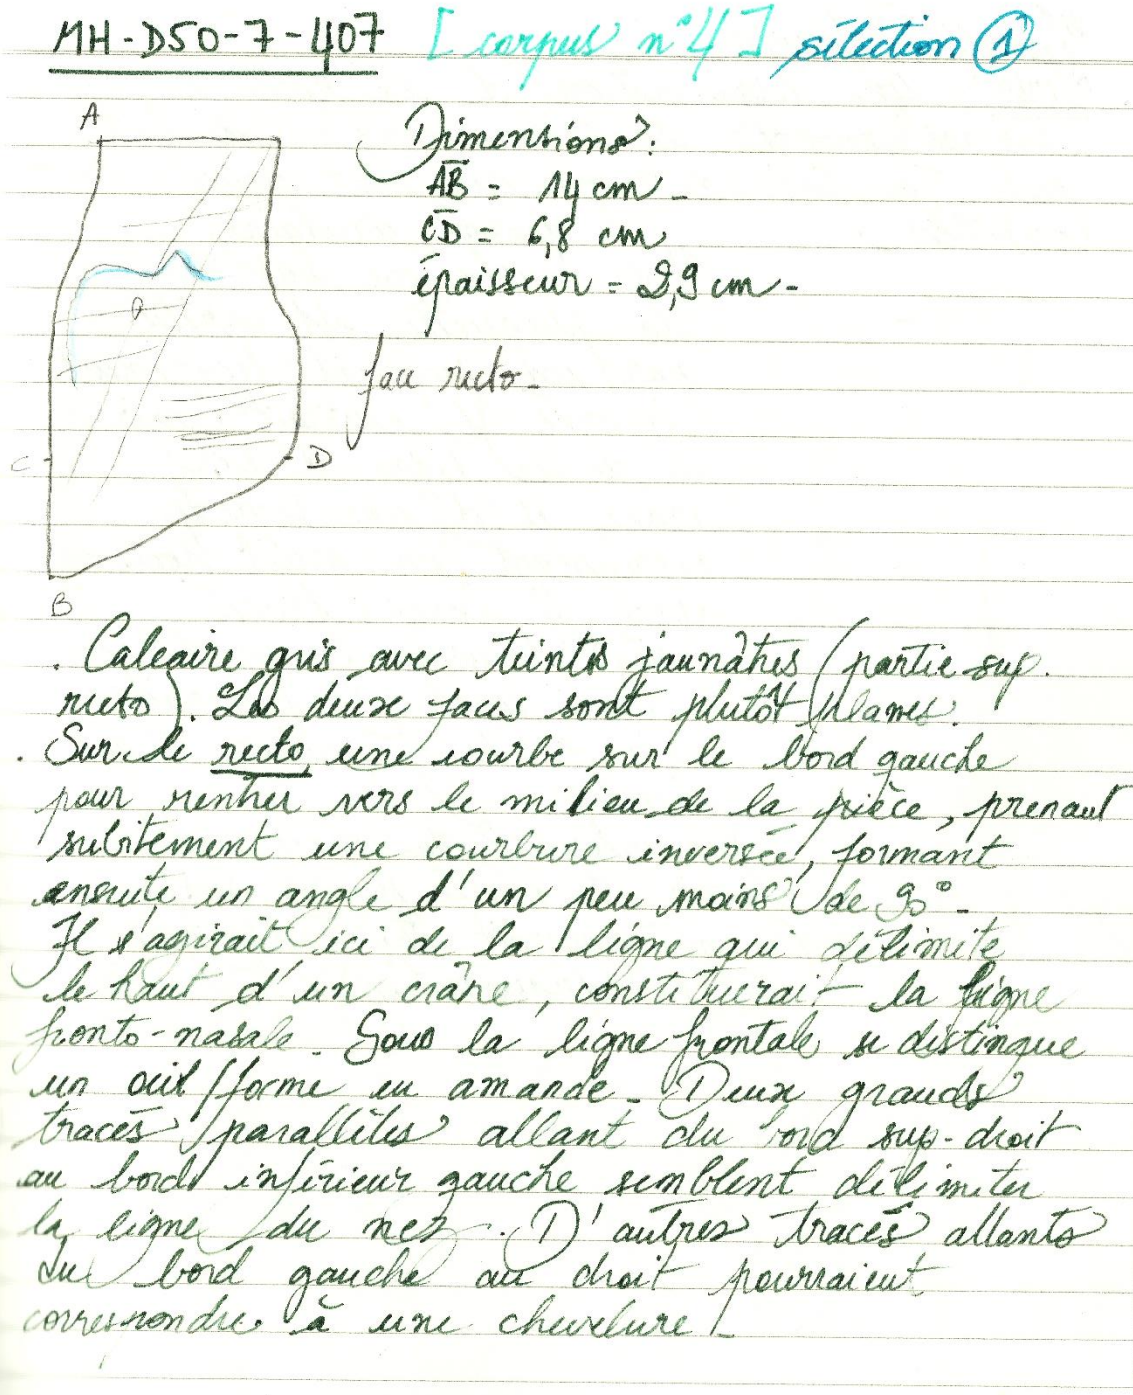 MH-D50-7-407 [corpus n°4] sélection ①
A
Dimensions :
AB = 14 cm -
CD = 6,8 cm
épaisseur = 2,9 cm -
face recto -
C
D
B
. Calcaire gris avec teintes jaunâtres (partie sup.
recto). Les deux faces sont plutôt planes.
. Sur le recto, une courbe sur le bord gauche
pour rentrer vers le milieu de la pièce, prenant
subitement une courbure inversée, formant
ensuite un angle d'un peu moins de 90° -
Il s'agirait ici de la ligne qui délimite
le haut d'un crâne, constituerait la ligne
fronto-nasale. Sous la ligne frontale se distingue
un œil forme en amande - Deux grands
tracés parallèles allant du bord sup-droit
au bord inférieur gauche semblent délimiter
la ligne du nez. D'autres tracés allants
du bord gauche au droit pourraient
correspondre à une chevelure -